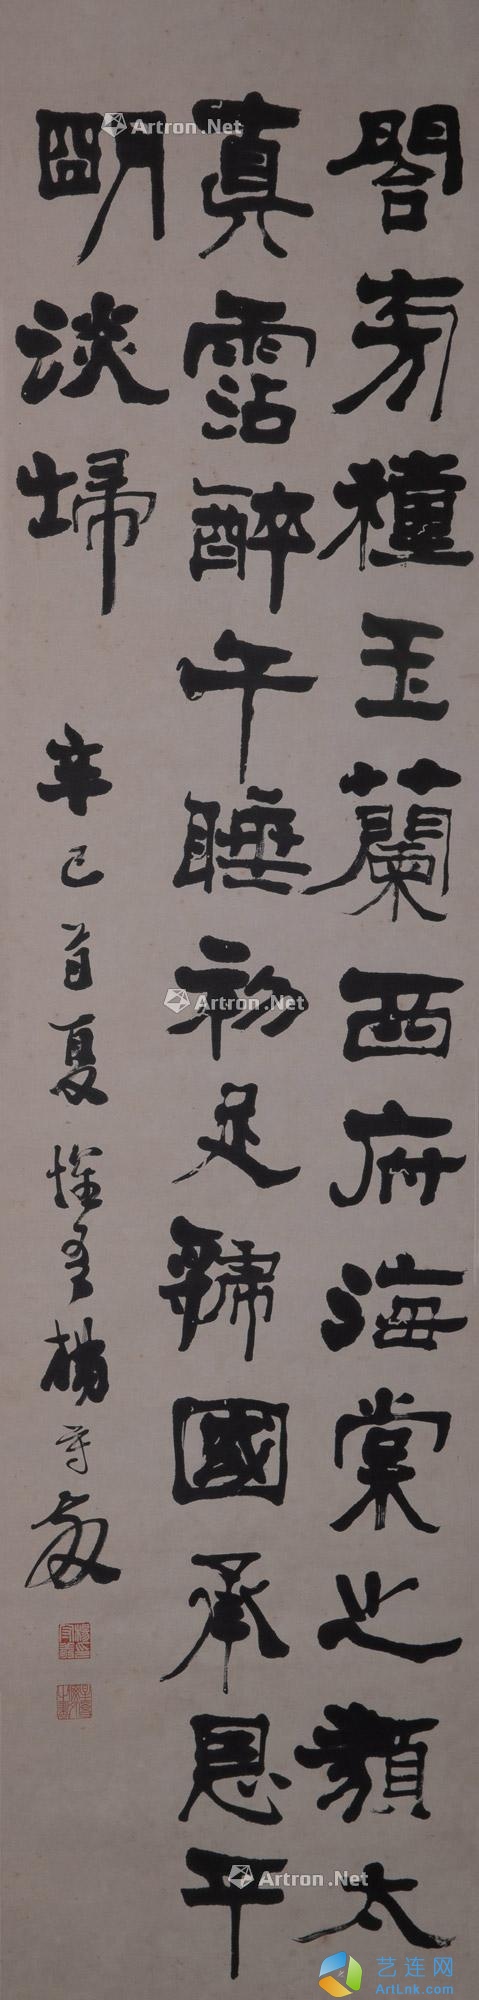 閤旁種玉蘭西府海棠之類太
真霑醉午睡初足虢國承恩平
明淡埽
辛巳首夏惺吾楊守敬
Artron.Net
Artron.Net
Artron.Net
Artron.Net
艺连网
ArtLnk.com